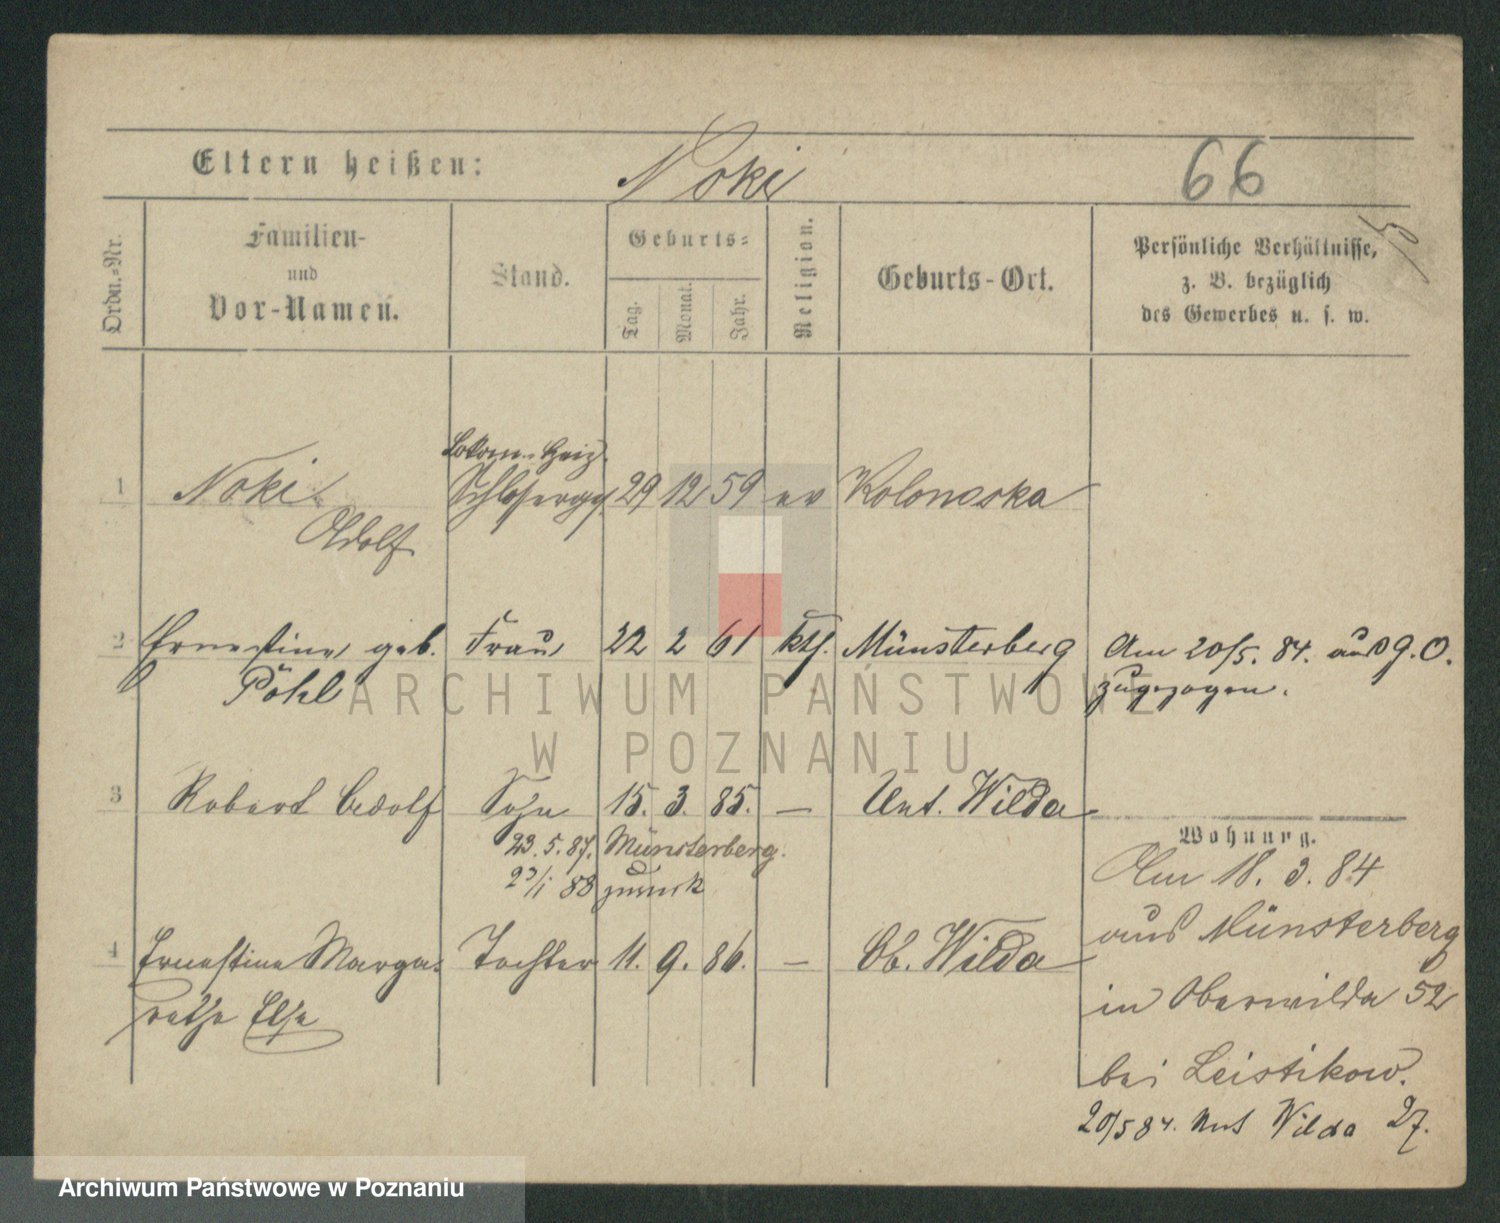 Eltern heißen:
Noki
66
Ordn.-Nr.
Familien-
und
Vor-Namen.
Stand.
Geburts-
Tag.
Monat.
Jahr.
Religion.
Geburts-Ort.
Persönliche Verhältnisse,
z. B. bezüglich
des Gewerbes u. s. w.
Lokom. Heiz.
1 Noki 29 12 59 ev Kolonoska
Adolf
2 Ernestine geb. Frau 22 2 61 kth. Münsterberg Am 20/5. 84. aus g. O.
Pöhl zugezogen.
3 Robert Adolf Sohn 15. 3. 85. — Unt. Wilda
23. 5. 87. Münsterberg.
88 zurück
Wohnung.
Am 18. 3. 84
aus Münsterberg
in Oberwilda 52
bei Leistikow.
20/5 84. Unt Wilda 27.
4 Ernestine Marga- Tochter 11. 9. 86. — Ob. Wilda
rethe Else
ARCHIWUM PAŃSTWOWE
W POZNANIU
Archiwum Państwowe w Poznaniu